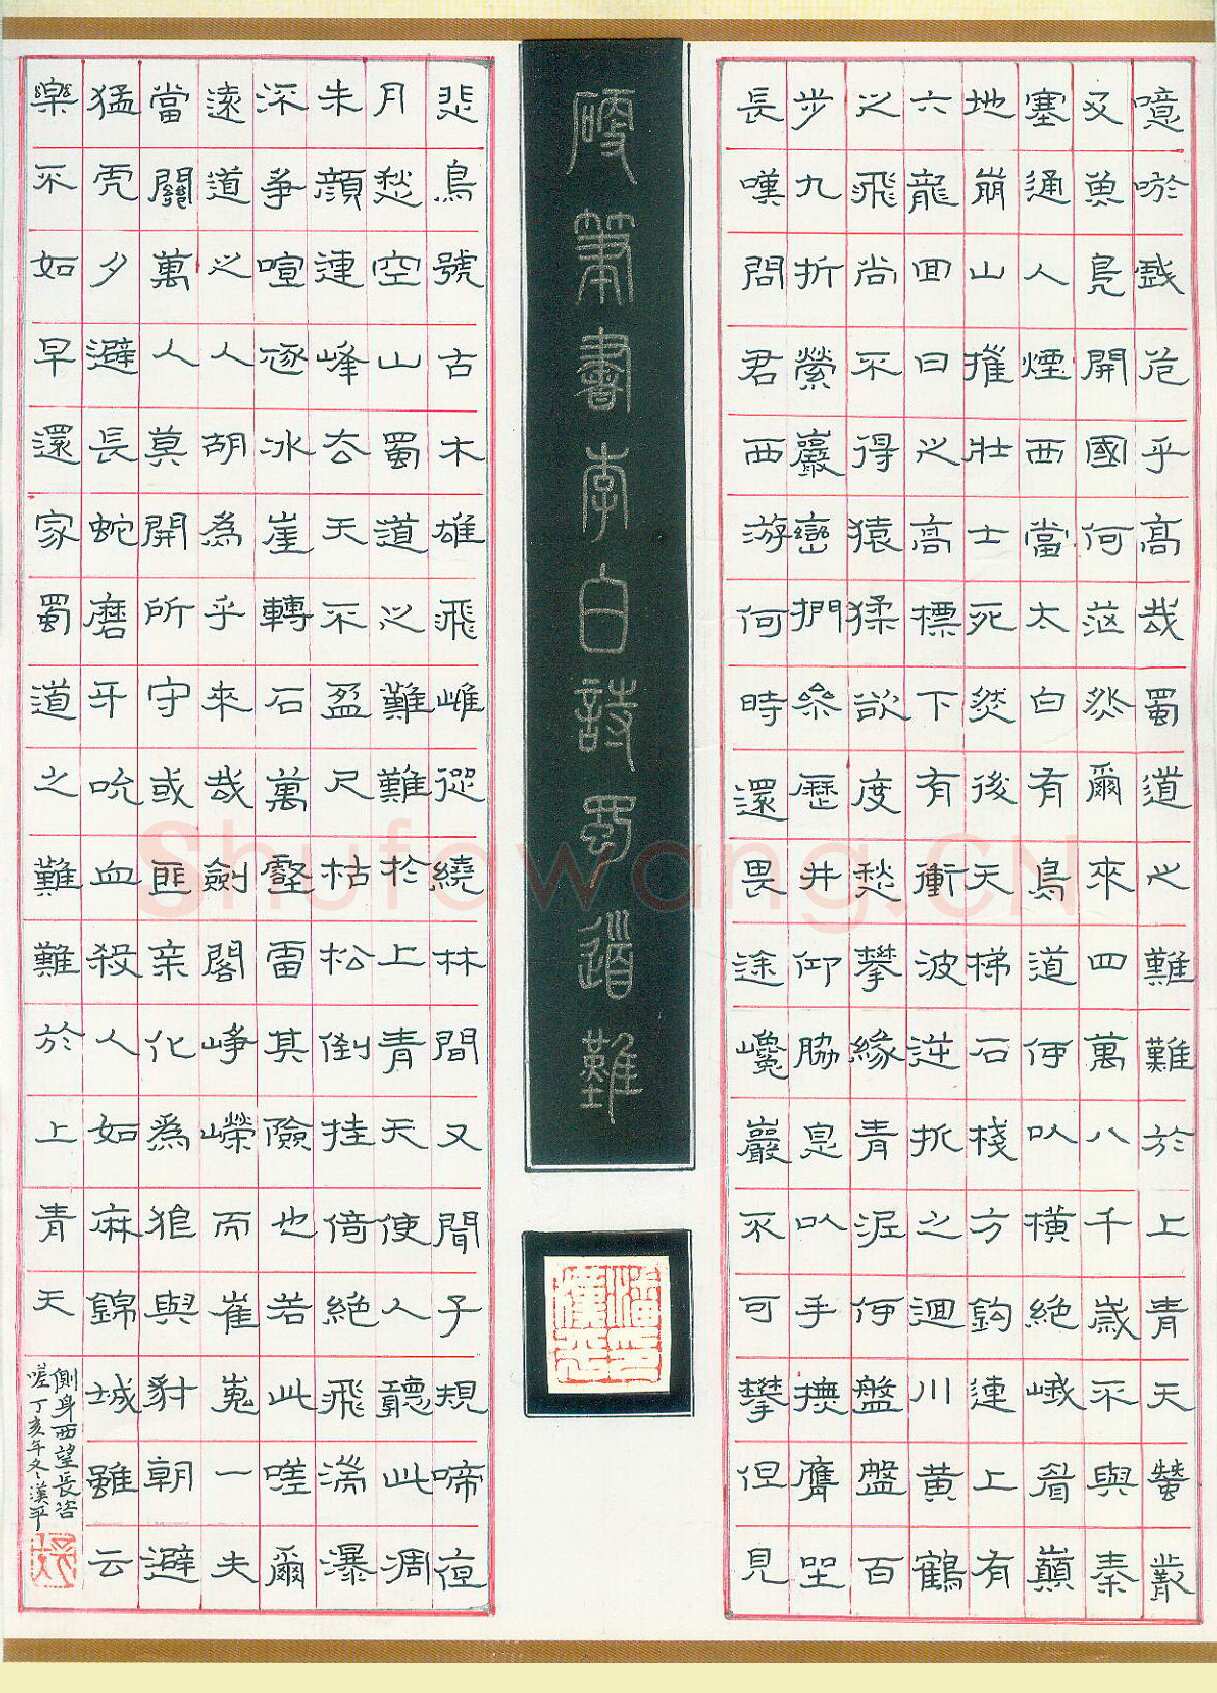 噫吁戲危乎高哉蜀道之難難於上青天蠶叢
及魚鳧開國何茫然爾來四萬八千歲不與秦
塞通人煙西當太白有鳥道何以橫絕峨眉巔
地崩山摧壯士死然後天梯石棧方鉤連上有
六龍回日之高標下有衝波逆折之迴川黃鶴
之飛尚不得猿猱欲度愁攀緣青泥何盤盤百
步九折縈巖巒捫參歷井仰脇息以手撫膺坐
長嘆問君西游何時還畏途巉巖不可攀但見
硬筆書李白詩蜀道難
悲鳥號古木雄飛雌從繞林間又聞子規啼夜
月愁空山蜀道之難難於上青天使人聽此凋
朱顏連峰去天不盈尺枯松倒挂倚絕飛湍瀑
深爭喧逐冰崖轉石萬壑雷其險也若此嗟爾
遠道之人胡為乎來哉劍閣崢嶸而崔嵬一夫
當關萬人莫開所守或匪親化為狼與豺朝避
猛虎夕避長蛇磨牙吮血殺人如麻錦城雖云
樂不如早還家蜀道之難難於上青天
側身西望長咨
嗟丁亥年冬漢平
Shufawang.CN